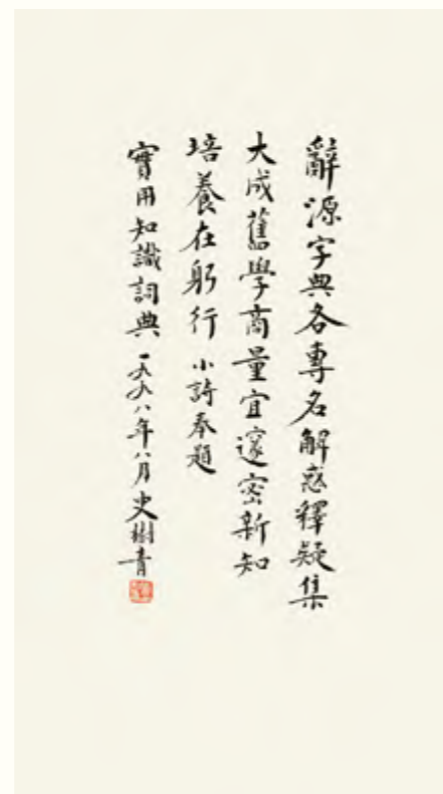 辭源字典各專名解惑釋疑集
大成舊學商量宜邃密新知
培養在躬行 小詩奉題
實用知識詞典 一九九八年八月史樹青